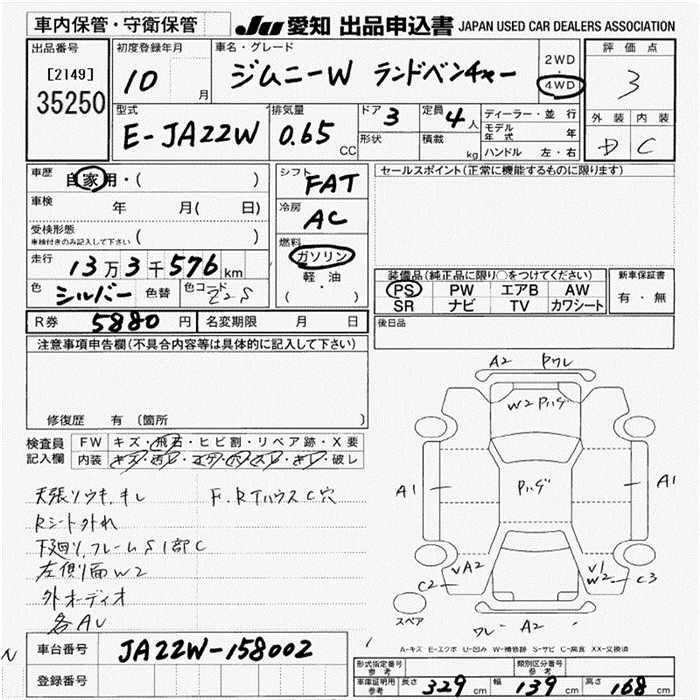 車内保管・守衛保管
JU 愛知 出品申込書 JAPAN USED CAR DEALERS ASSOCIATION
出品番号
[2149]
35250
初度登録年月
10 月
車名・グレード
ジムニーW ランドベンチャー
2WD
4WD
評価点
3
外装 内装
D C
型式
E-JA22W
排気量
0.65 CC
ドア 3
形状
定員 4人
積載 kg
ディーラー・並行
モデル年式 年
ハンドル 左・右
車歴 自家用・( )
車検 年 月( 日)
受検形態
車検付きのみ記入して下さい ( )
走行 13万3千576km
色 シルバー 色替 色コード Z2S
シフト FAT
冷房 AC
燃料
ガソリン
軽・油
( ・ )
セールスポイント(正常に機能するものに限ります)
装備品(純正品に限り○をつけてください)
PS PW エアB AW
SR ナビ TV カワシート
新車保証書
有・無
後日品
R券 5880円 名変期限 月 日
注意事項申告欄(不具合内容等は具体的に記入して下さい)
修復歴 有 (箇所 )
検査員記入欄
FW キズ・飛石・ヒビ割・リペア跡・X要
内装 キズ・汚レ・コゲ・穴・スレ・キレ・破レ
天張リウキ,キレ F.RTハウスC穴
Rシート外れ
下廻り,フレームS1部C
左側面W2
外オーディオ
各AU
A2 Pワレ
W2 Pハゲ
A1
Pハゲ
A1
VA2
C2
V1
W2
C3
スペア
ワレ A2
A-キズ E-エクボ U-凹み W-補修跡 S-サビ C-腐食 XX-交換済
N
車台番号 JA22W-158002
登録番号
形式指定番号 参考
類別区分番号 参考
車庫証明用 参考 長さ 329cm 幅 139cm 高さ 168cm